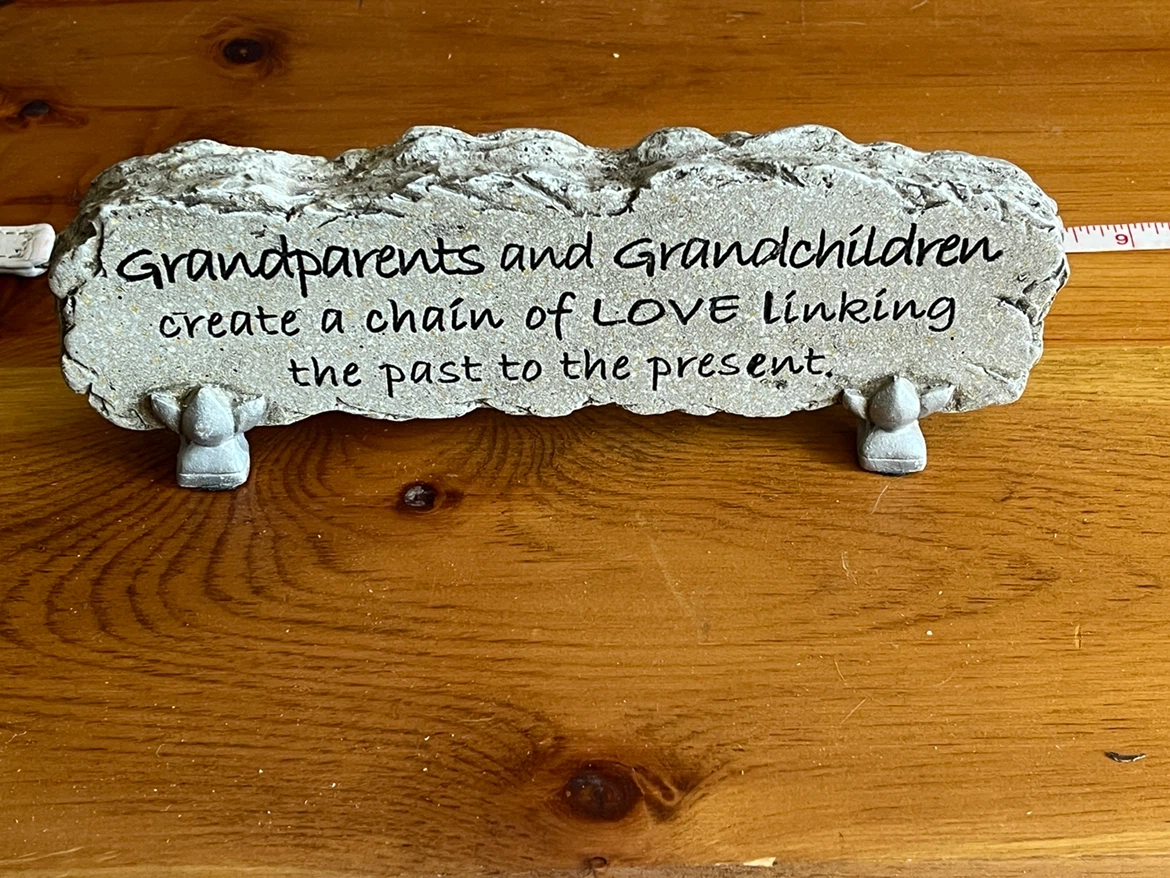 Grandparents and Grandchildren
create a chain of LOVE linking
the past to the present.
9